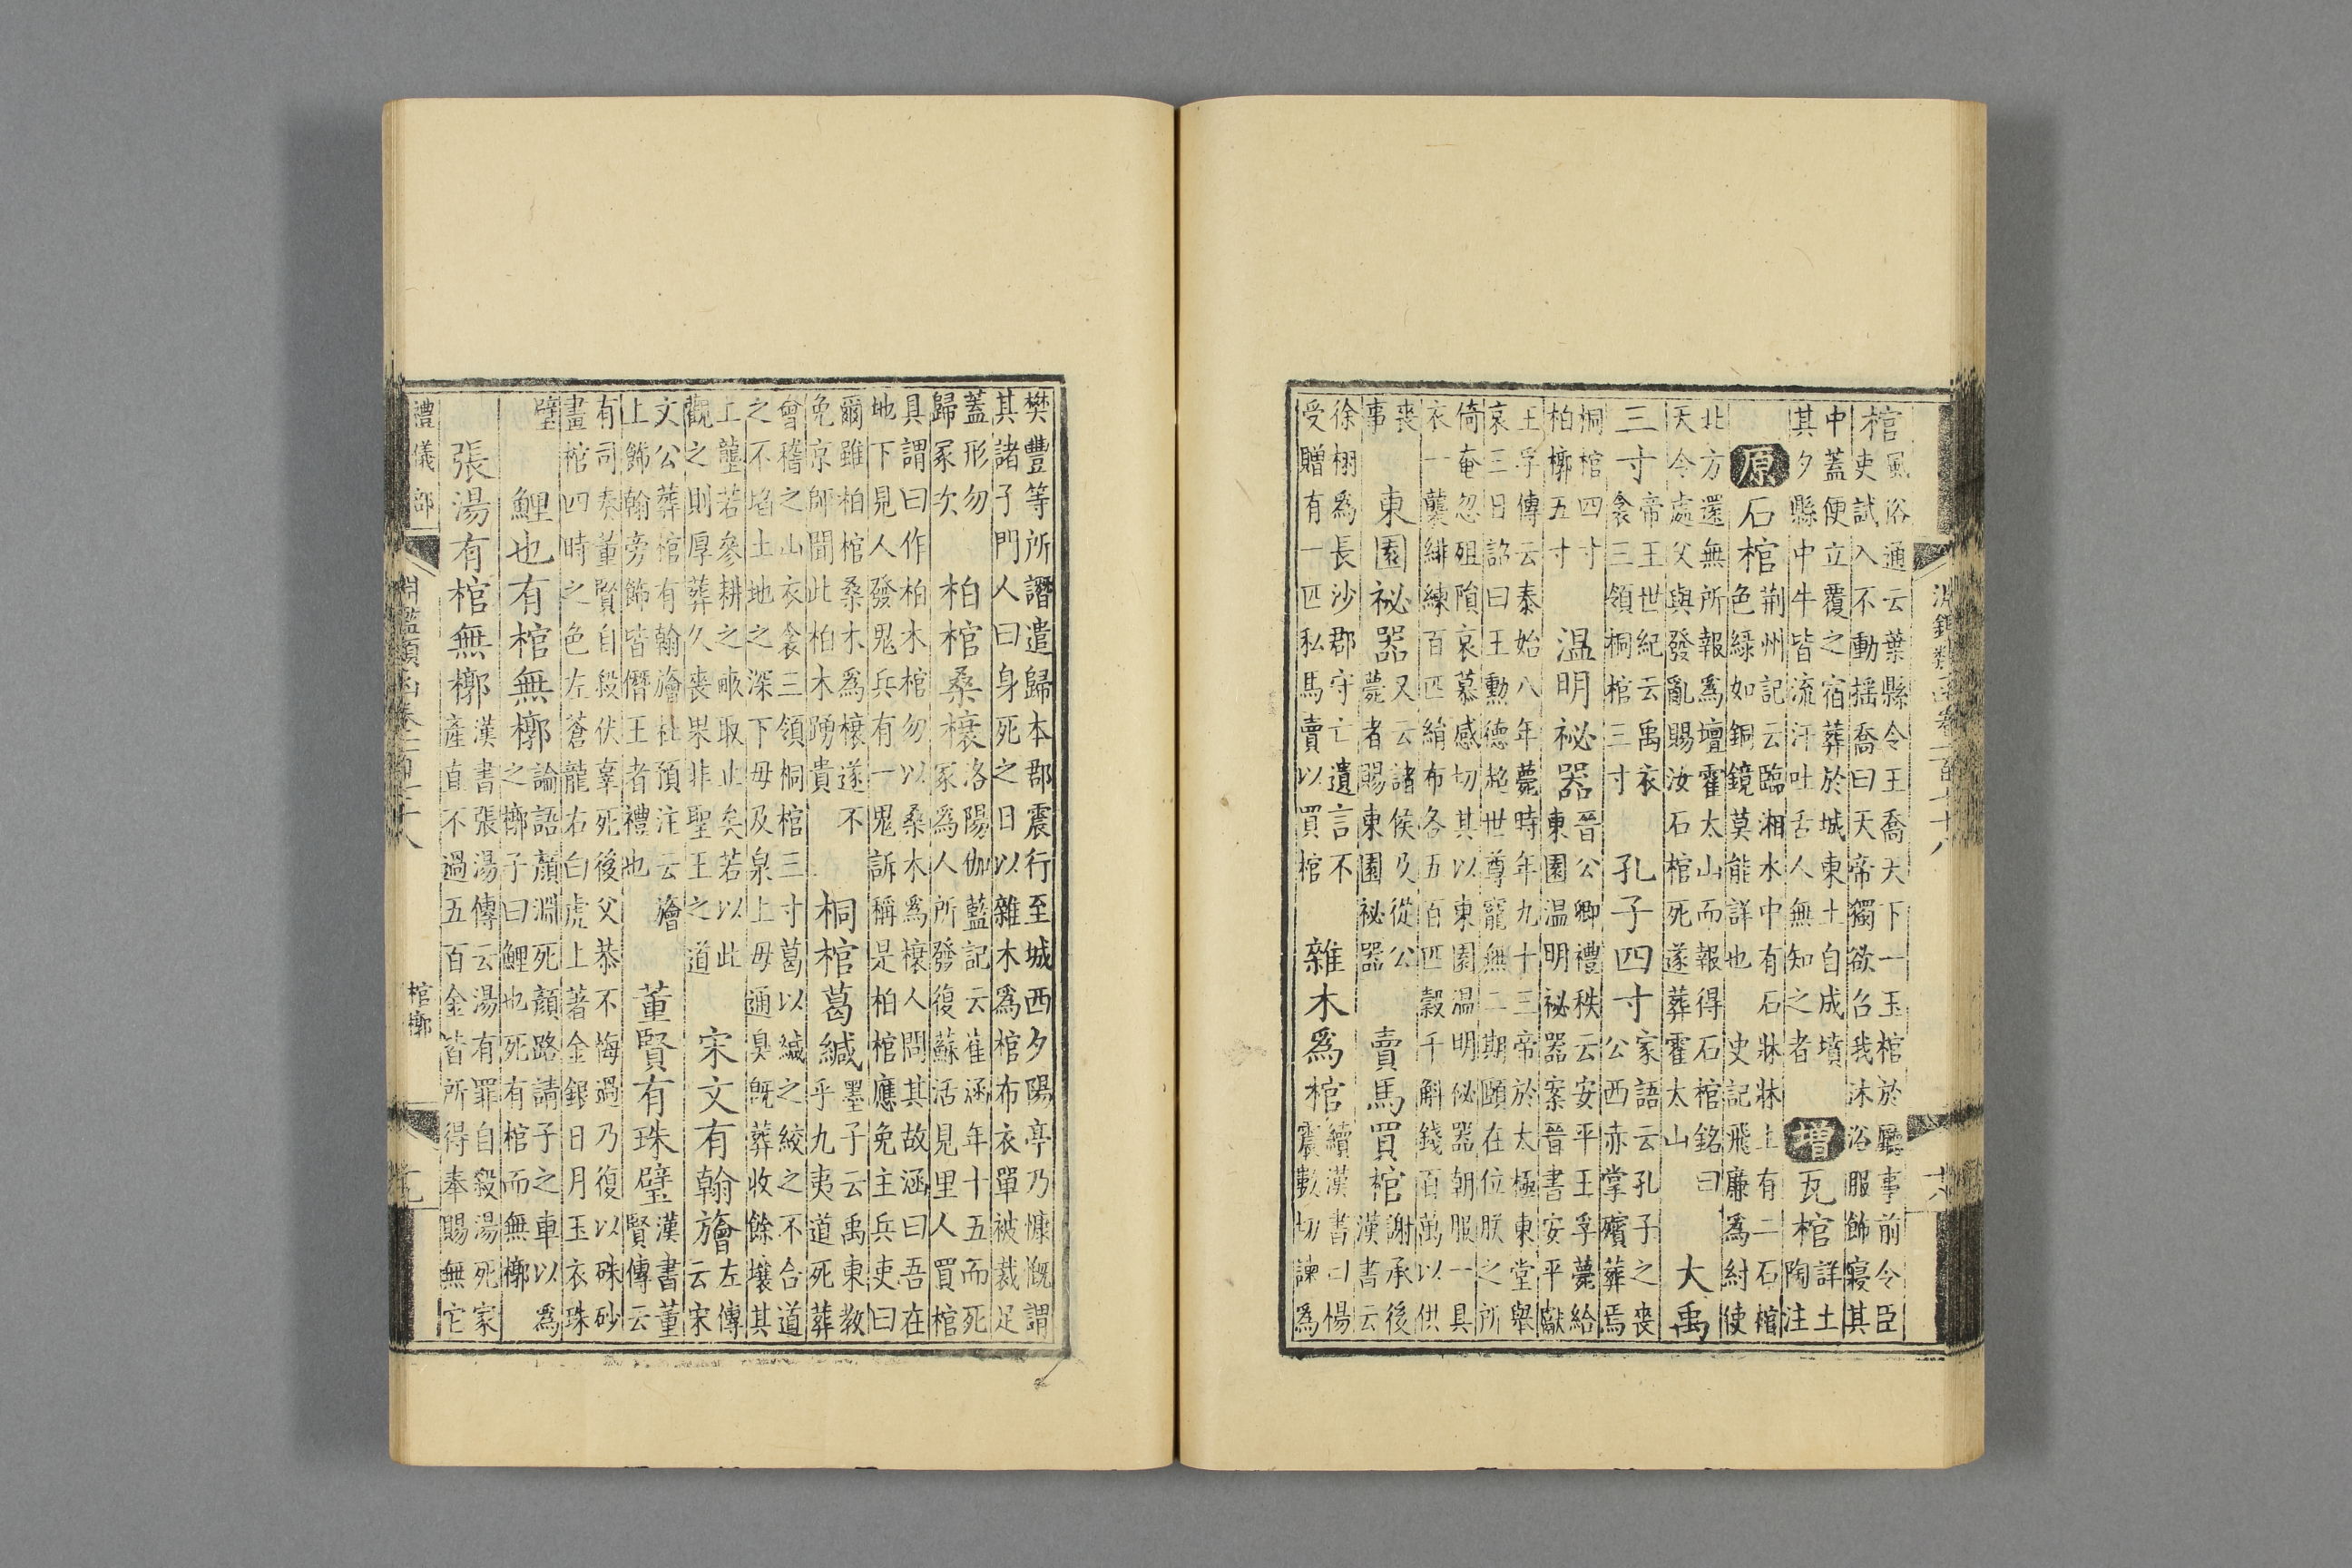 棺風俗通云葉縣令王喬天下一玉棺於廳事前令臣
吏試入不動搖喬曰天帝獨欲召我沐浴服飾寢其
中蓋便立覆之宿葬於城東土自成墳
其夕縣中牛皆流汗吐舌人無知之者
增瓦棺詳土
陶注
原石棺荆州記云臨湘水中有石牀牀上有二石棺
色綠如銅鏡莫能詳也 史記飛廉為紂使
北方還無所報為壇霍太山而報得石棺銘曰
天令處父與發亂賜汝石棺死遂葬霍太山
大禹
三寸帝王世紀云禹衣
衾三領桐棺三寸
孔子四寸家語云孔子之喪
公西赤掌殯葬焉
桐棺四寸
柏槨五寸
温明祕器晉公卿禮秩云安平王孚薨給
東園温明祕器案晉書安平獻
王孚傳云泰始八年薨時年九十三帝於太極東堂舉
哀三日詔曰王勳德超世尊寵無二期頤在位朕之所
倚奄忽殂隕哀慕感切其以東園温明祕器朝服一具
衣一襲緋練百匹絹布各五百匹穀千斛錢百萬以供
喪
事
東園祕器又云諸侯及從公
薨者賜東園祕器
賣馬買棺謝承後
漢書云
徐栩為長沙郡守亡遺言不
受贈有一匹私馬賣以買棺
雜木爲棺續漢書曰楊
震數切諫為
樊豐等所譖遣歸本郡震行至城西夕陽亭乃慷慨謂
其諸子門人曰身死之日以雜木為棺布衣單被裁足
蓋形勿
歸冢次
柏棺桑欀洛陽伽藍記云崔涵年十五而死
冢為人所發復蘇活見里人買棺
具謂曰作柏木棺勿以桑木為欀人問其故涵曰吾在
地下見人發鬼兵有一鬼訴稱是柏棺應免主兵吏曰
爾雖柏棺桑木為欀遂不
免京師聞此柏木踴貴
桐棺葛緘墨子云禹東教
乎九夷道死葬
會稽之山衣衾三領桐棺三寸葛以緘之絞之不合道
之不埳土地之深下毋及泉上毋通臭既葬收餘壤其
上壟若參耕之畝取止矣若以此
觀之則厚葬久喪果非聖王之道
宋文有翰旝左傳
云宋
文公葬棺有翰旝杜預注云旝
上飾翰旁飾皆僭王者禮也
董賢有珠璧漢書董
賢傳云
有司奏董賢自殺伏辜死後父恭不悔過乃復以硃砂
畫棺四時之色左蒼龍右白虎上著金銀日月玉衣珠
璧
鯉也有棺無槨論語顏淵死顏路請子之車以為
之槨子曰鯉也死有棺而無槨
張湯有棺無槨漢書張湯傳云湯有罪自殺湯死家
產直不過五百金皆所得奉賜無它
禮儀部
棺槨